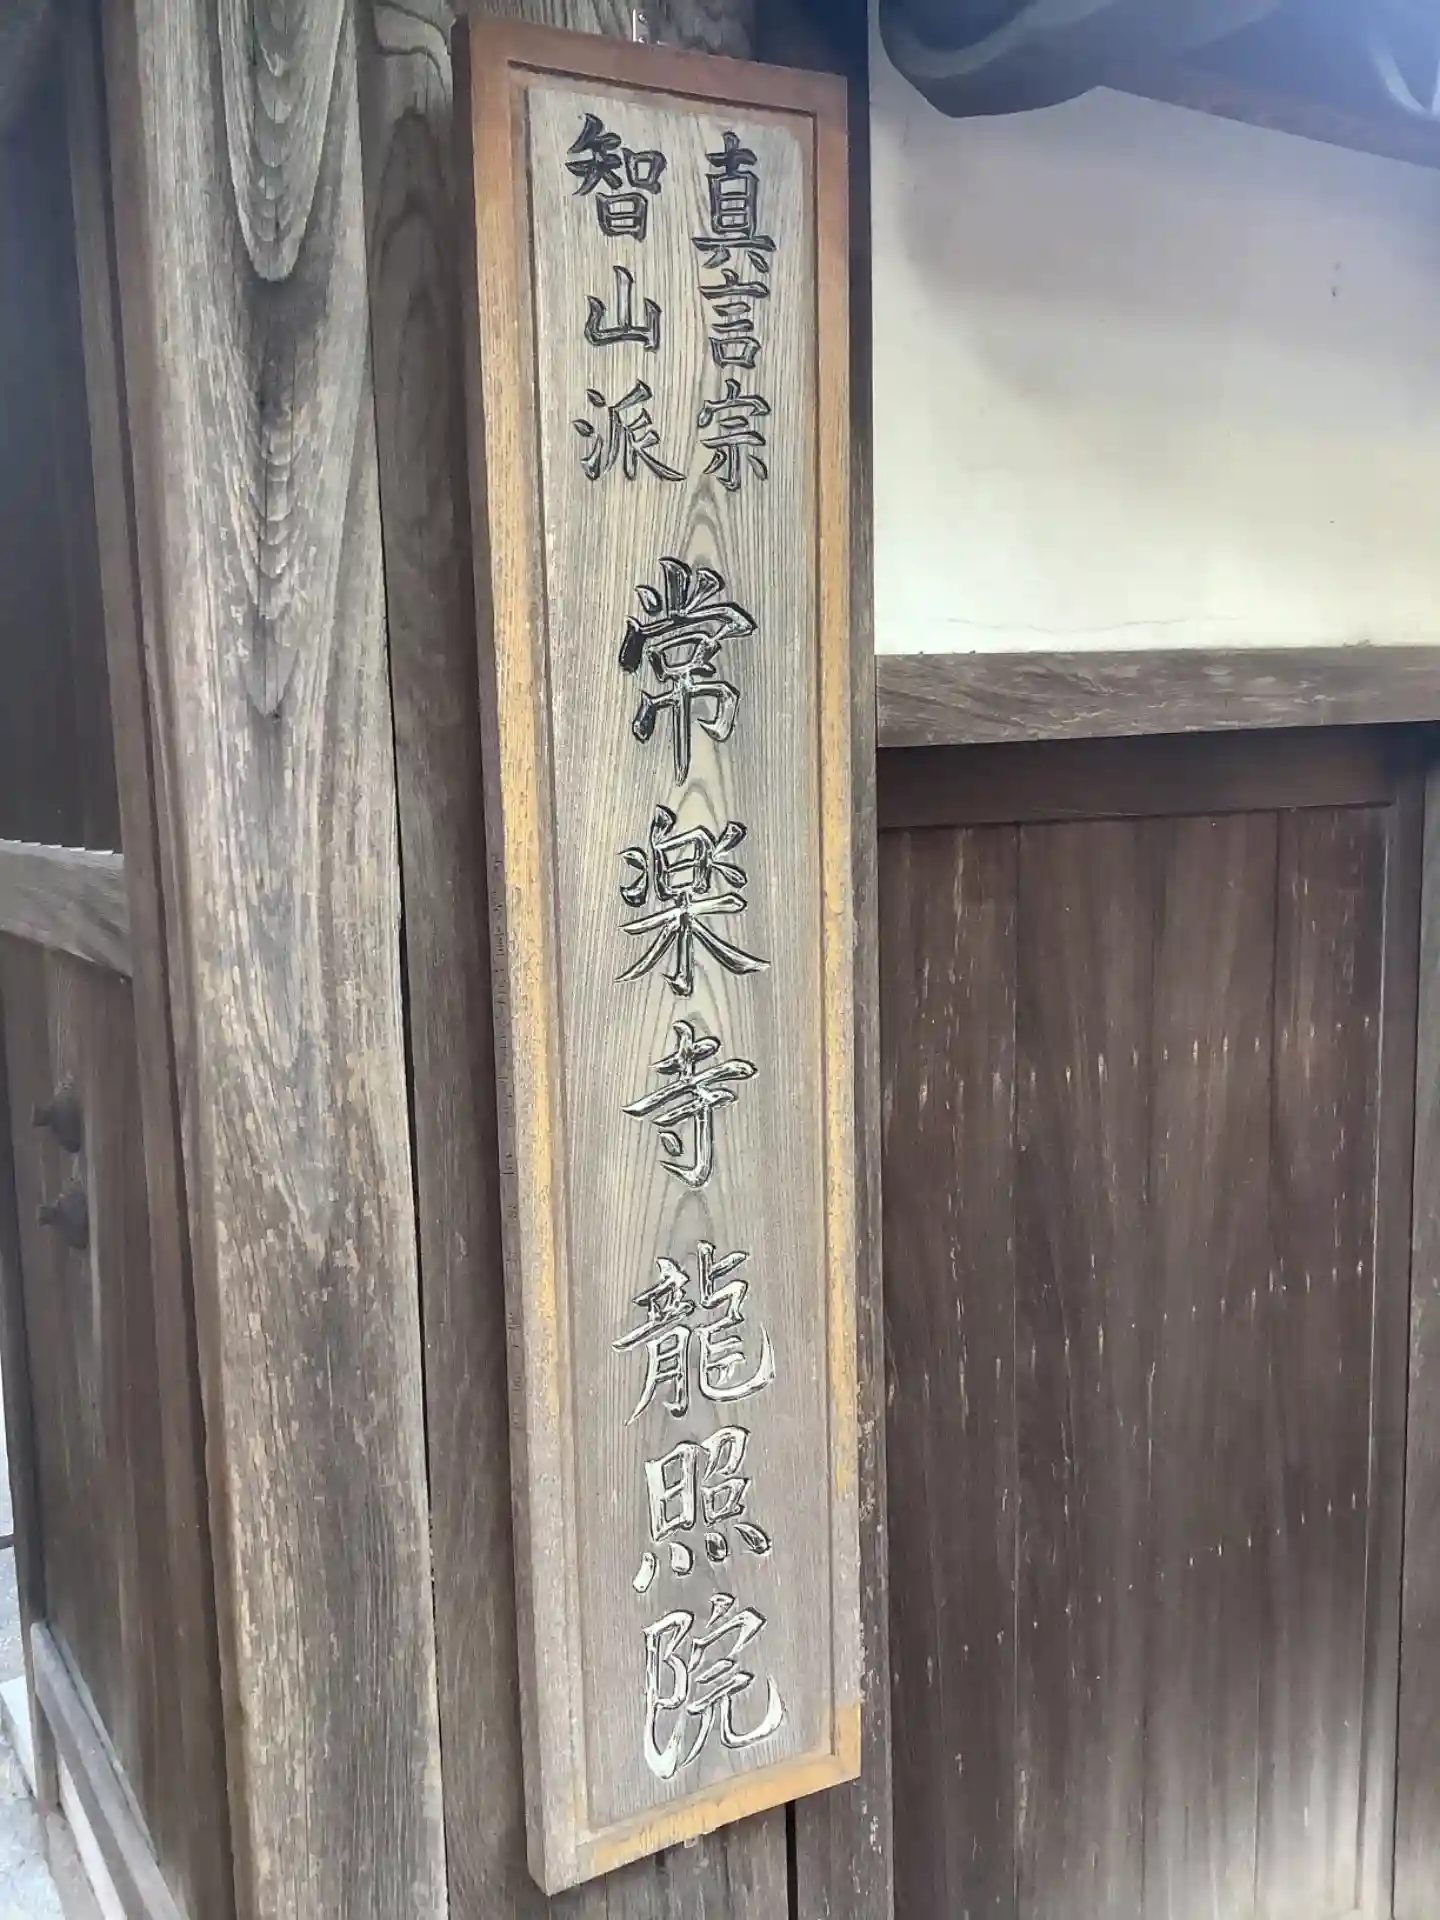 真言宗
智山派
常楽寺 龍照院